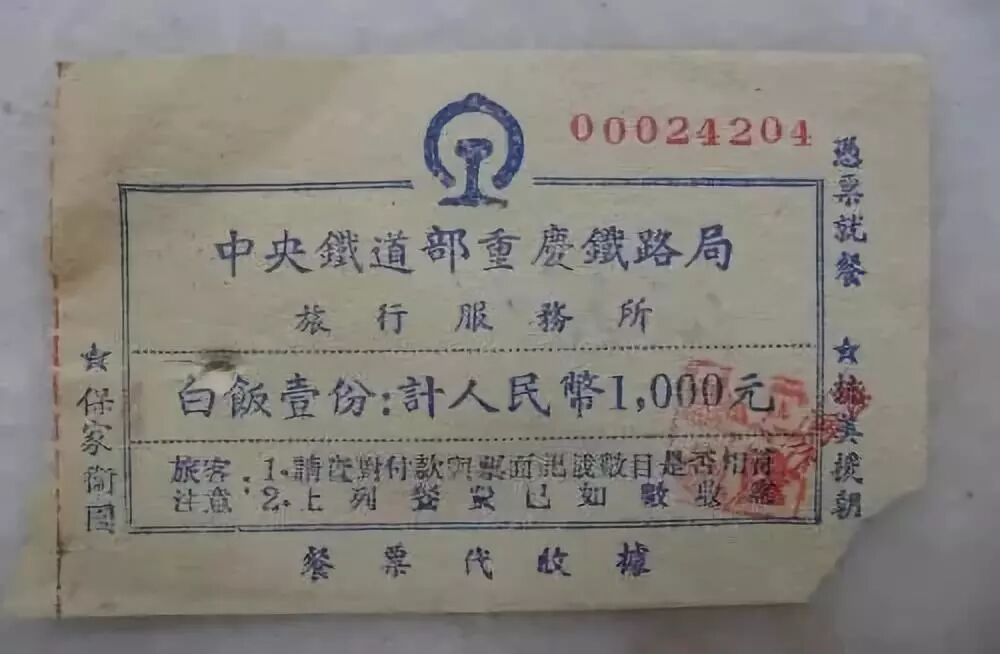 00024204
中央鐵道部重慶鐵路局
旅行服務所
白飯壹份:計人民幣1,000元
旅客注意:
1.請核對付款與票面記載數目是否相符
2.上列餐費已如數收訖
餐票代收據
憑票就餐
★抗美援朝
★保家衛國